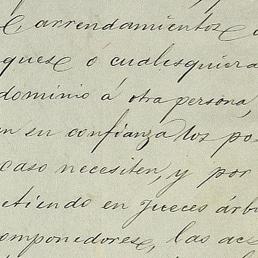 arrendamientos
ques o cualesquiera
dominio á otra persona,
en su confianza los po
caso necesiten, y por
etiendo en jueces árb
omponedores, las ac